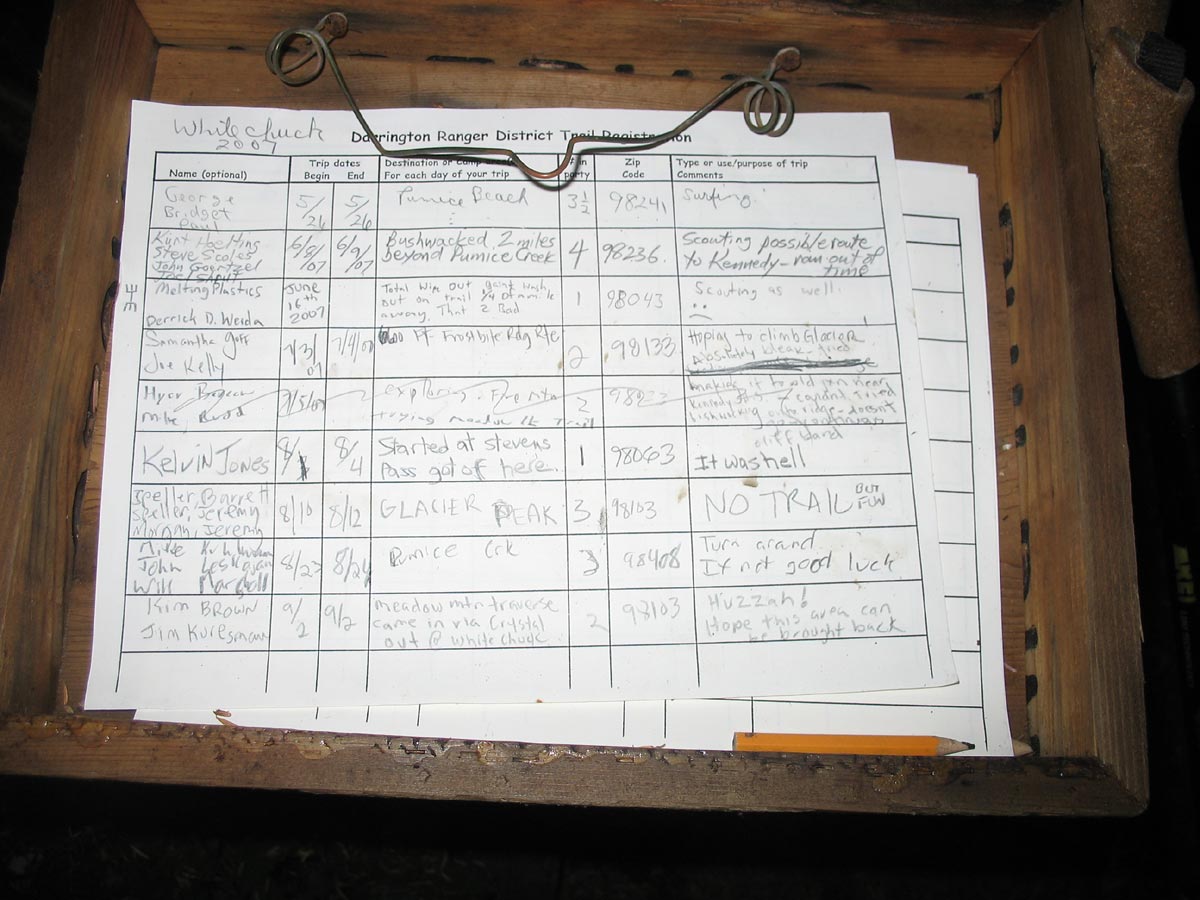 White chuck
2007
Darrington Ranger District Trail Registration
Name (optional)
Trip dates
Begin End
Destination or camp
For each day of your trip
# in
party
Zip
Code
Type or use/purpose of trip
Comments
George
Bridget
Paul
5/
26
5/
26
Pumice Beach
3 1/2
98241
Surfing
Kurt
Steve Scoles
John Goertzel
Joel
6/8/07
6/9/07
Bushwacked 2 miles
beyond Pumice Creek
4
98236.
Scouting possible route
to Kennedy - ran out of
time
Melting Plastics
Derrick D. Weida
June
16th
2007
Total Wipe out giant wash
out on trail 1/4 of a mile
away. That 2 Bad
1
98043
Scouting as well.
Samantha Goff
Joe Kelly
7/3/
07
7/4/07
Pt Frostbite Rdg Rte
2
98133
Hoping to climb Glacier!
Absolutely bleak
Mike
7/5/07
exploring Fire Mtn
trying meadow Mt Trail
2
making it to old
Kennedy
Kelvin Jones
8/1
8/
4
Started at stevens
Pass got of here.
1
98063
cliff band
It was hell
Speller, Barrett
Speller, Jeremy
Morgan, Jeremy
8/10
8/12
GLACIER PEAK
3
98103
NO TRAIL BUT
FUN
Mike
John
Will Marshall
8/23
8/24
Pumice Crk
3
98408
Turn around
If not good luck
Kim BROWN
Jim Kuresman
9/
2
9/2
meadow mtn traverse
came in via Crystal
out @ white chuck
2
98103
Huzzah!
Hope this area can
be brought back